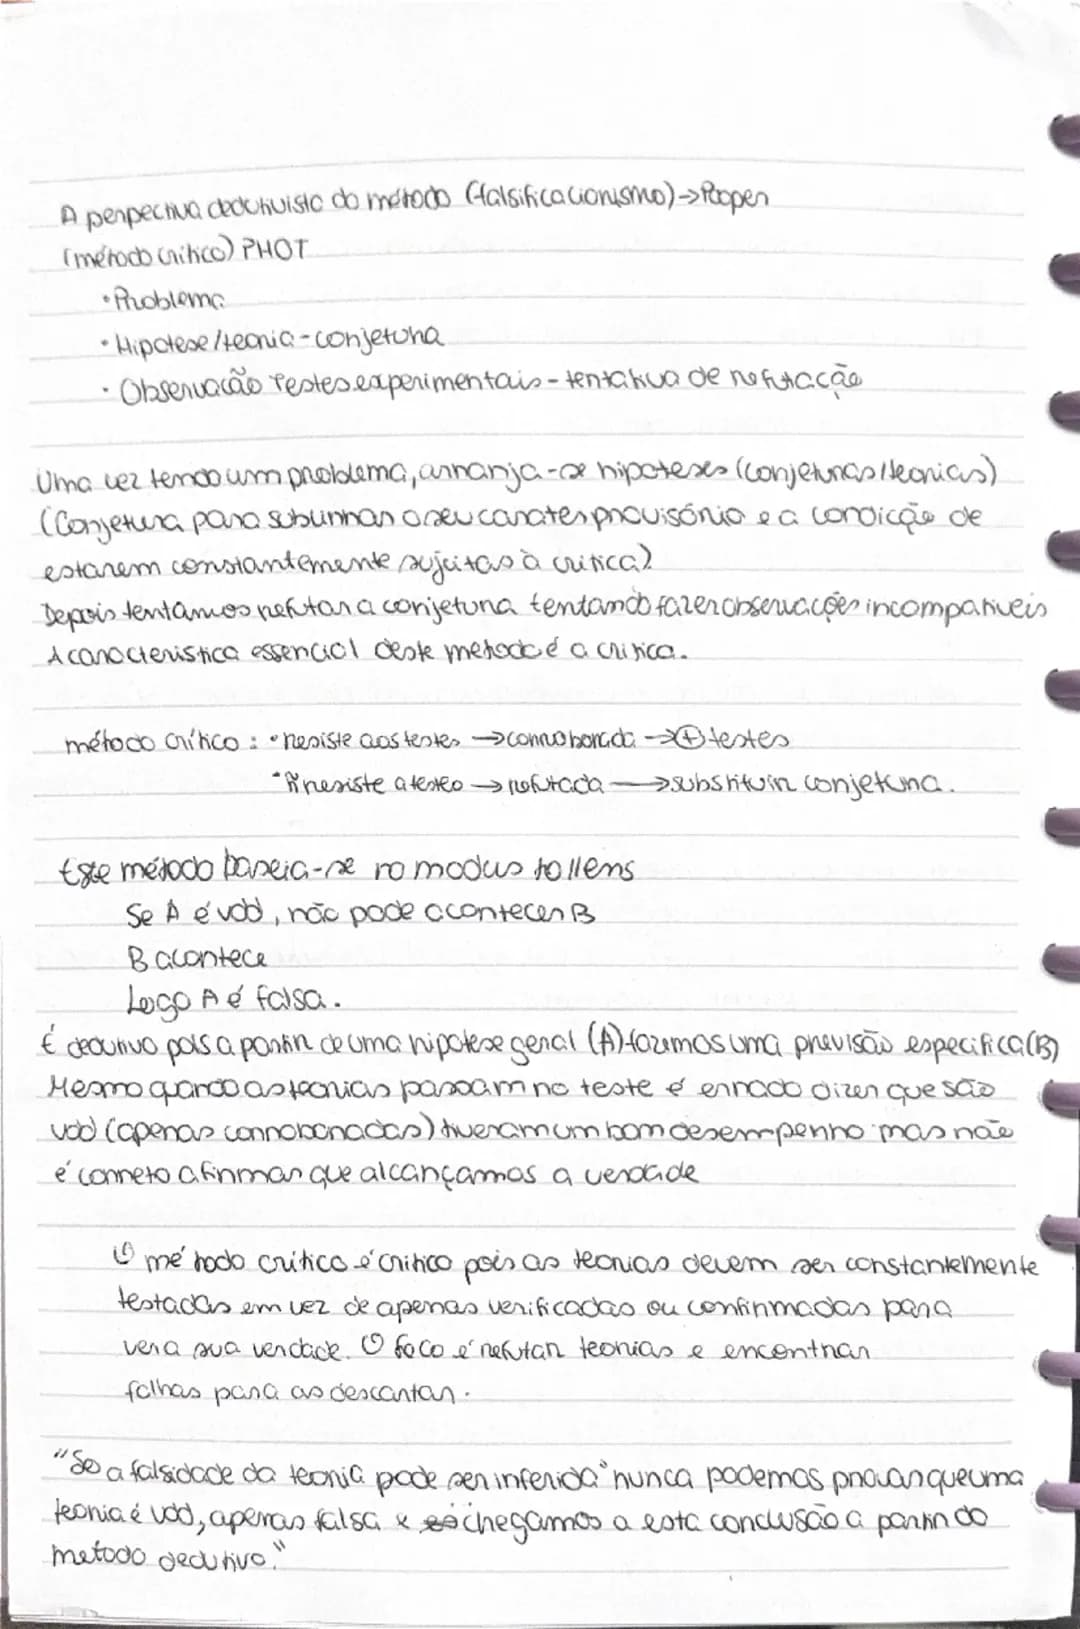 A perpectiva dedutivista do método (falsificacionismo)→Popper
(método crítico) PHOT
• Problema
• Hipotese/teoria - conjetura
• Observação Testes experimentais - tentativa de refutação
Uma vez tendo um problema, arranja-se hipoteses (conjeturas/teorias)
(Conjetura para sublinhar o seu carater provisório e a condição de
estarem constantemente sujeitas à critica)
Depois tentamos refutar a conjetura tentando fazer observações incompativeis
A caracteristica essencial deste metodo é a critica.
método crítico : • resiste aos testes → corroborada → ⊕ testes
• ñ resiste a testes → refutada → substituir conjetura.
Este método baseia-se no modus tollens
Se A é vdd, não pode acontecer B
B acontece
Logo A é falsa.
É dedutivo pois a partir de uma hipotese geral (A) fazemos uma previsão especifica (B)
Mesmo quando as teorias passam no teste é errado dizer que são
vdd (apenas corroboradas) tiveram um bom desempenho mas não
é correto afirmar que alcançamos a verdade
O método crítico é critico pois as teorias devem ser constantemente
testadas em vez de apenas verificadas ou confirmadas para
ver a sua verdade. O foco é refutar teorias e encontrar
falhas para as descartar.
"Só a falsidade da teoria pode ser inferida" nunca podemos provar que uma
teoria é vdd, apenas falsa e chegamos a esta conclusão a partir do
metodo dedutivo."